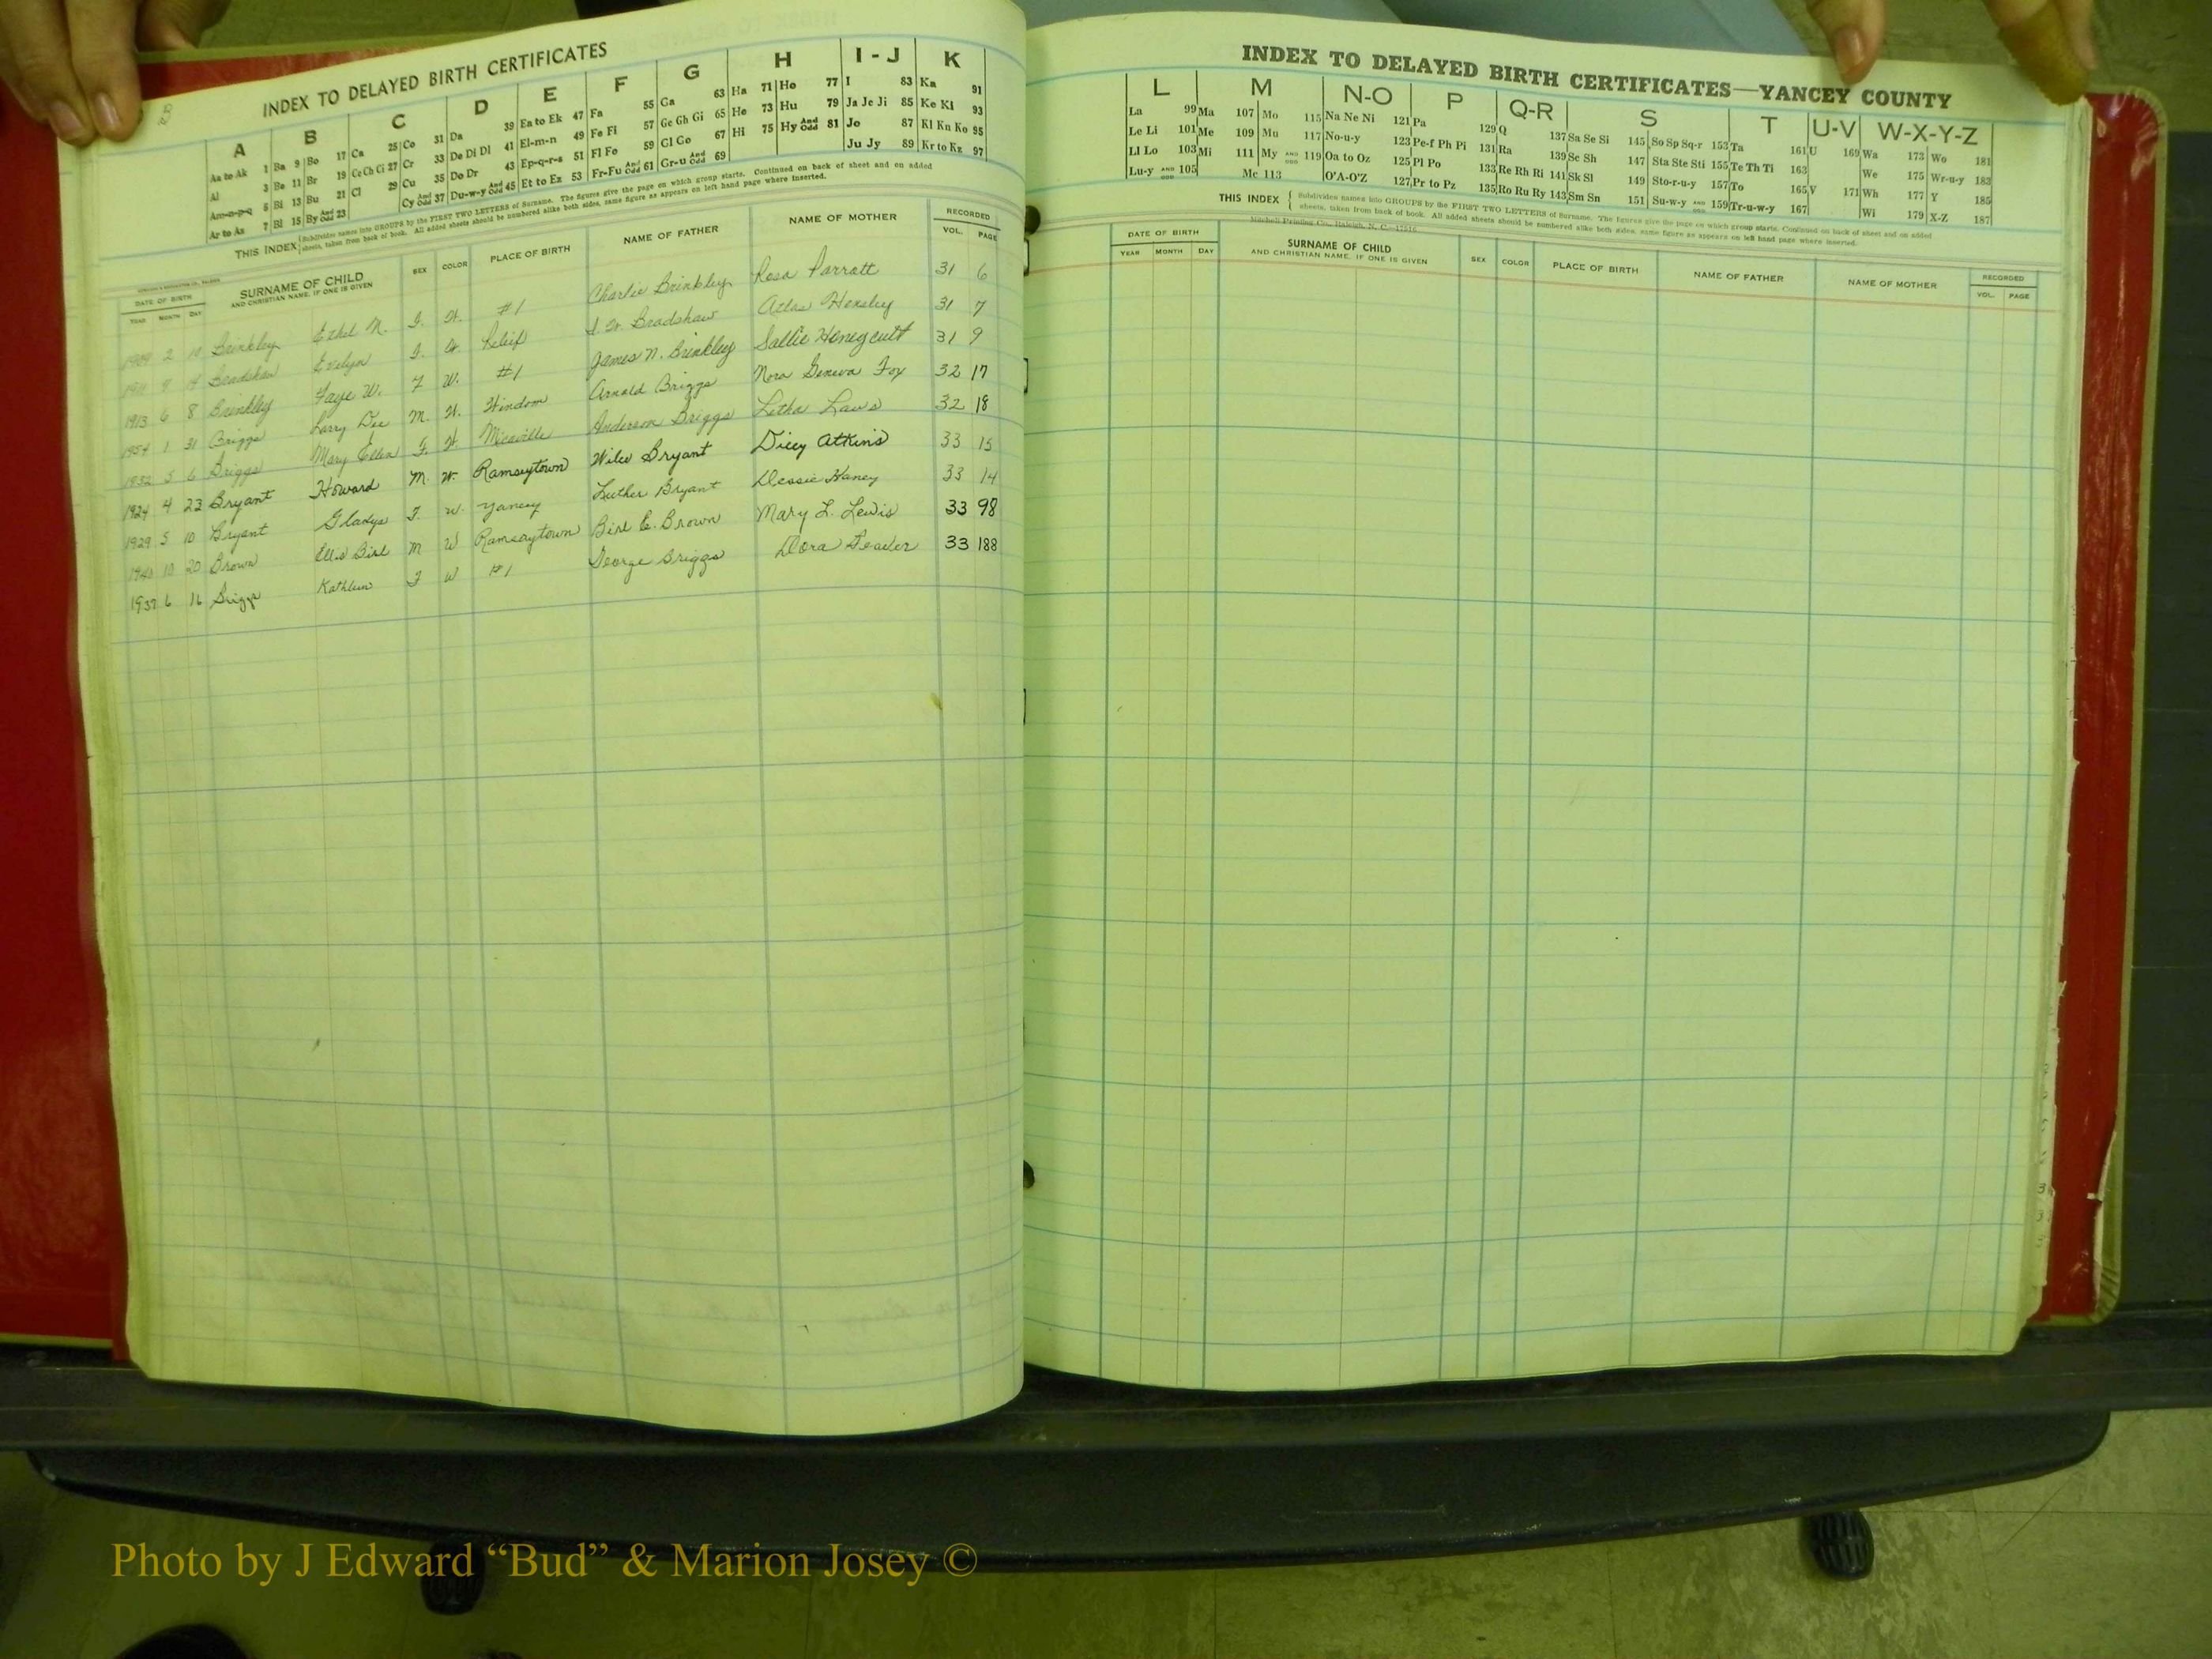 INDEX TO DELAYED BIRTH CERTIFICATES
A B C D E F G H I - J K
Aa to Ak 1 Ba 9 Bo 17 Ca 25 Co 31 Da 39 Ea to Ek 47 Fa 55 Ga 63 Ha 71 Ho 77 I 83 Ka 91
Al 3 Be 11 Br 19 Ce Ch Ci 27 Cr 33 De Di Dl 41 El-m-n 49 Fe Fi 57 Ge Gh Gi 65 He 73 Hu 79 Ja Je Ji 85 Ke Ki 93
Am-n-p-q 5 Bi 13 Bu 21 Cl 29 Cu 35 Do Dr 43 Ep-q-r-s 51 Fl Fo 59 Gl Go 67 Hi 75 Hy And Odd 81 Jo 87 Kl Kn Ko 95
Ar to As 7 Bl 15 By And Odd 23 Cy And Odd 37 Du-w-y And Odd 45 Et to Ez 53 Fr-Fu And Odd 61 Gr-u And Odd 69 Ju Jy 89 Kr to Kz 97
THIS INDEX { Subdivides names into GROUPS by the FIRST TWO LETTERS of Surname. The figures give the page on which group starts. Continued on back of sheet and on added
sheets, taken from back of book. All added sheets should be numbered alike both sides, same figure as appears on left hand page where inserted.
DATE OF BIRTH SURNAME OF CHILD SEX COLOR PLACE OF BIRTH NAME OF FATHER NAME OF MOTHER RECORDED
YEAR MONTH DAY AND CHRISTIAN NAME, IF ONE IS GIVEN VOL. PAGE
1909 2 10 Brinkley Ethel N. F. W. #1 Charlie Brinkley Rosa Parratt 31 6
1911 9 14 Bradshaw Evelyn F. W. Relief Bradshaw Atlas Hensley 31 7
1913 6 8 Brinkley Faye W. F W. #1 James N. Brinkley Sallie Honeycutt 31 9
1954 1 31 Briggs Larry Dee M. W. Windom Arnold Briggs Nora Geneva Fox 32 17
1932 5 6 Briggs Mary Ellen F. W. Micaville Anderson Briggs Letha Laws 32 18
1924 4 23 Bryant Howard M. W. Ramseytown Wilce Bryant Dicey Atkins 33 15
1929 5 10 Bryant Gladys F. W. Yancey Luther Bryant Dessie Haney 33 14
10 20 Brown Ellis Birl M W Ramseytown Birl E. Brown Mary L. Lewis 33 98
1937 6 16 Briggs Kathleen F W #1 George Briggs Dora Peader 33 188
INDEX TO DELAYED BIRTH CERTIFICATES—YANCEY COUNTY
L M N-O P Q-R S T U-V W-X-Y-Z
La 99 Ma 107 Mo 115 Na Ne Ni 121 Pa 129 Q 137 Sa Se Si 145 So Sp Sq-r 153 Ta 161 U 169 Wa 173 Wo 181
Le Li 101 Me 109 Mu 117 No-u-y 123 Pe-f Ph Pi 131 Ra 139 Sc Sh 147 Sta Ste Sti 155 Te Th Ti 163 We 175 Wr-u-y 183
Ll Lo 103 Mi 111 My AND ODD 119 Oa to Oz 125 Pl Po 133 Re Rh Ri 141 Sk Sl 149 Sto-r-u-y 157 To 165 V 171 Wh 177 Y 185
Lu-y AND ODD 105 Mc 113 O'A-O'Z 127 Pr to Pz 135 Ro Ru Ry 143 Sm Sn 151 Su-w-y AND ODD 159 Tr-u-w-y 167 Wi 179 X-Z 187
THIS INDEX { Subdivides names into GROUPS by the FIRST TWO LETTERS of Surname. The figures give the page on which group starts. Continued on back of sheet and on added
sheets, taken from back of book. All added sheets should be numbered alike both sides, same figure as appears on left hand page where inserted.
Mitchell Printing Co., Raleigh, N. C.
DATE OF BIRTH SURNAME OF CHILD SEX COLOR PLACE OF BIRTH NAME OF FATHER NAME OF MOTHER RECORDED
YEAR MONTH DAY AND CHRISTIAN NAME, IF ONE IS GIVEN VOL. PAGE
Photo by J Edward “Bud” & Marion Josey ©